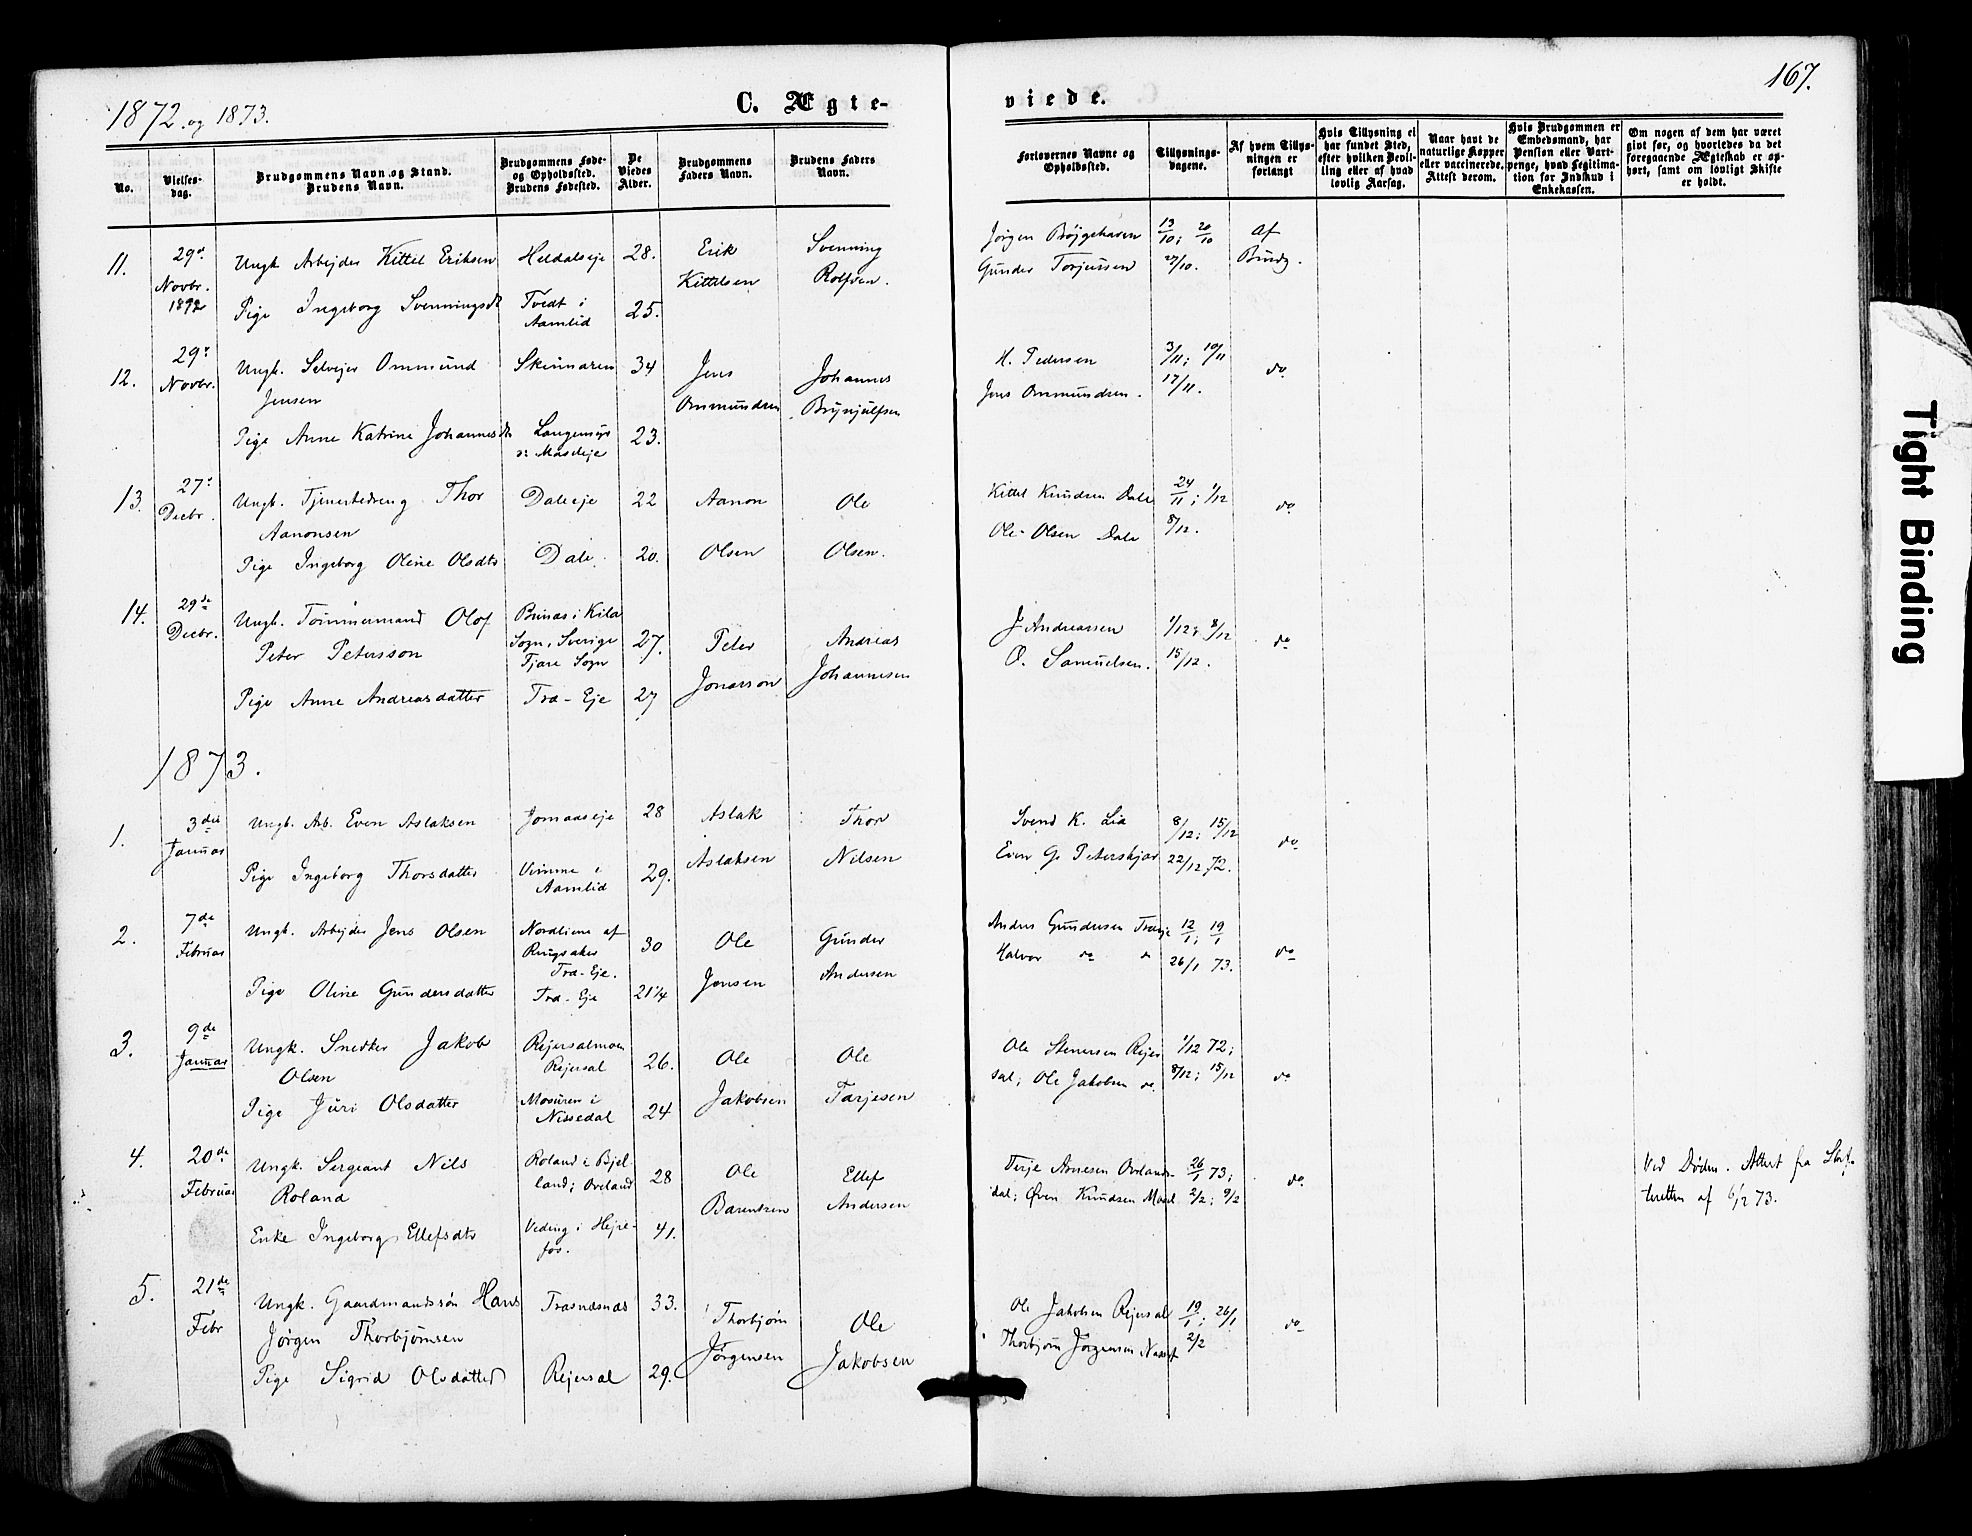 1872. og 1873.
C. Ægte-
viede.
167.
No.
Vielses-
dag.
Brudgommens Navn og Stand.
Brudens Navn.
Brudgommens Føde-
og Opholdssted.
Brudens Fødested.
De
Viedes
Alder.
Brudgommens
Faders Navn.
Brudens Faders
Navn.
Forlovernes Navne og
Opholdssted.
Tillysnings-
dagene.
Af hvem Tillys-
ningen er
forlangt
Hvis Tillysning ei
har fundet Sted,
efter hvilken Bevil-
ling eller af hvad
lovlig Aarsag.
Naar havt de
naturlige Kopper
eller vaccinerede.
Attest derom.
Hvis Brudgommen er
Embedsmand, har
Pension eller Vart-
penge, hvad Legitima-
tion for Indskud i
Enkekassen.
Om nogen af dem har været
givt før, og hvorledes da det
foregaaende Ægteskab er op-
hørt, samt om lovligt Skifte
er holdt.
11.
29de
Novbr.
1872
Ungk Arbejder Kittel Eriksen
Pige Ingeborg Svenningsdt
Heldalseje
Tvedt i
Aamlid
28.
25.
Erik
Kittelsen
Svenning
Rolfsen.
Jørgen Bøjgehaven
Gunder Torjussen
13/10; 20/10
27/10.
Af
Brudg.
12.
29de
Novbr.
Ungk. Selvejer Ommund
Jensen
Pige Anne Katrine Johannesdt
Skinnaren
34
23.
Jens
Ommundsen
Johannes
Brynjulfsen
H. Pedersen
Jens Ommundsen.
3/11; 10/11
17/11.
do
13.
27de
Decbr.
Ungk. Tjenestedreng Thor
Aanonsen
Pige Ingeborg Oline Olsdtr
Daleeje
Dale.
22
20.
Aanon
Olsen
Ole
Olsen.
Kittel Knudsen Dale
Ole Olsen Dale
24/11; 1/12
8/12.
do
14.
29de
Decbr.
Ungk. Tømmermand Olof
Peter Petersson
Pige Anne Andreasdatter
Sogn, Sverige
Tra-Eje
27.
27
Peter
Jonasson
Andreas
Johannesen
J. Andreassen
O. Samuelsen.
1/12; 8/12
15/12.
do
1873.
1.
3die
Januar
Ungk. Arb. Even Aslaksen
Pige Ingeborg Thorsdatter
Jomaaseje
Vimme i
Aamlid
28
29.
Aslak
Aslaksen
Thor
Nilsen
Svend K. Lia
Even G. Peterskjær
8/12; 15/12
22/12 72.
do
2.
7de
Februar
Ungk. Arbejder Jens Olsen
Pige Oline Gundersdatter
Nordliene af
Ringsaker
Tra-Eje.
Tra-Eje
30
21¼
Ole
Jensen
Gunder
Andersen
Anders Gundersen Traeje
Halvor do do
12/1; 19/1
26/1 73.
do
3.
9de
Januar
Ungk. Snedker Jakob
Olsen
Pige Juri Olsdatter
Rejersalmoen
Rejersal
Mosuren i
Nissedal
26.
24
Ole
Jakobsen
Ole
Tarjesen
Ole Stenersen Rejer
sal; Ole Jakobsen do.
1/12 72;
8/12; 15/12
do
4.
20de
Februar
Ungk. Sergeant Nils
Roland
Enke Ingeborg Ellefsdtr
Roland i Bjel-
land; Oveland
Veding i Hejre-
fos.
28
41.
Ole
Barentsen
Ellef
Andersen
Terje Arnesen Oveland-
dal; Øven Knudsen
26/1 73;
2/2; 9/2
do
Ved Døden. Attest fra Skif-
teretten af 6/2 73.
5.
21de
Febr
Ungk. Gaardmandssøn Hans
Jørgen Thorbjørnsen
Pige Sigrid Olsdatter
Trasnæsnas
Rejersal
33.
29.
Thorbjørn
Jørgensen
Ole
Jakobsen
Ole Jakobsen Rejersal
Thorbjørn Jørgensen
19/1; 26/1
2/2
do
Tight Binding